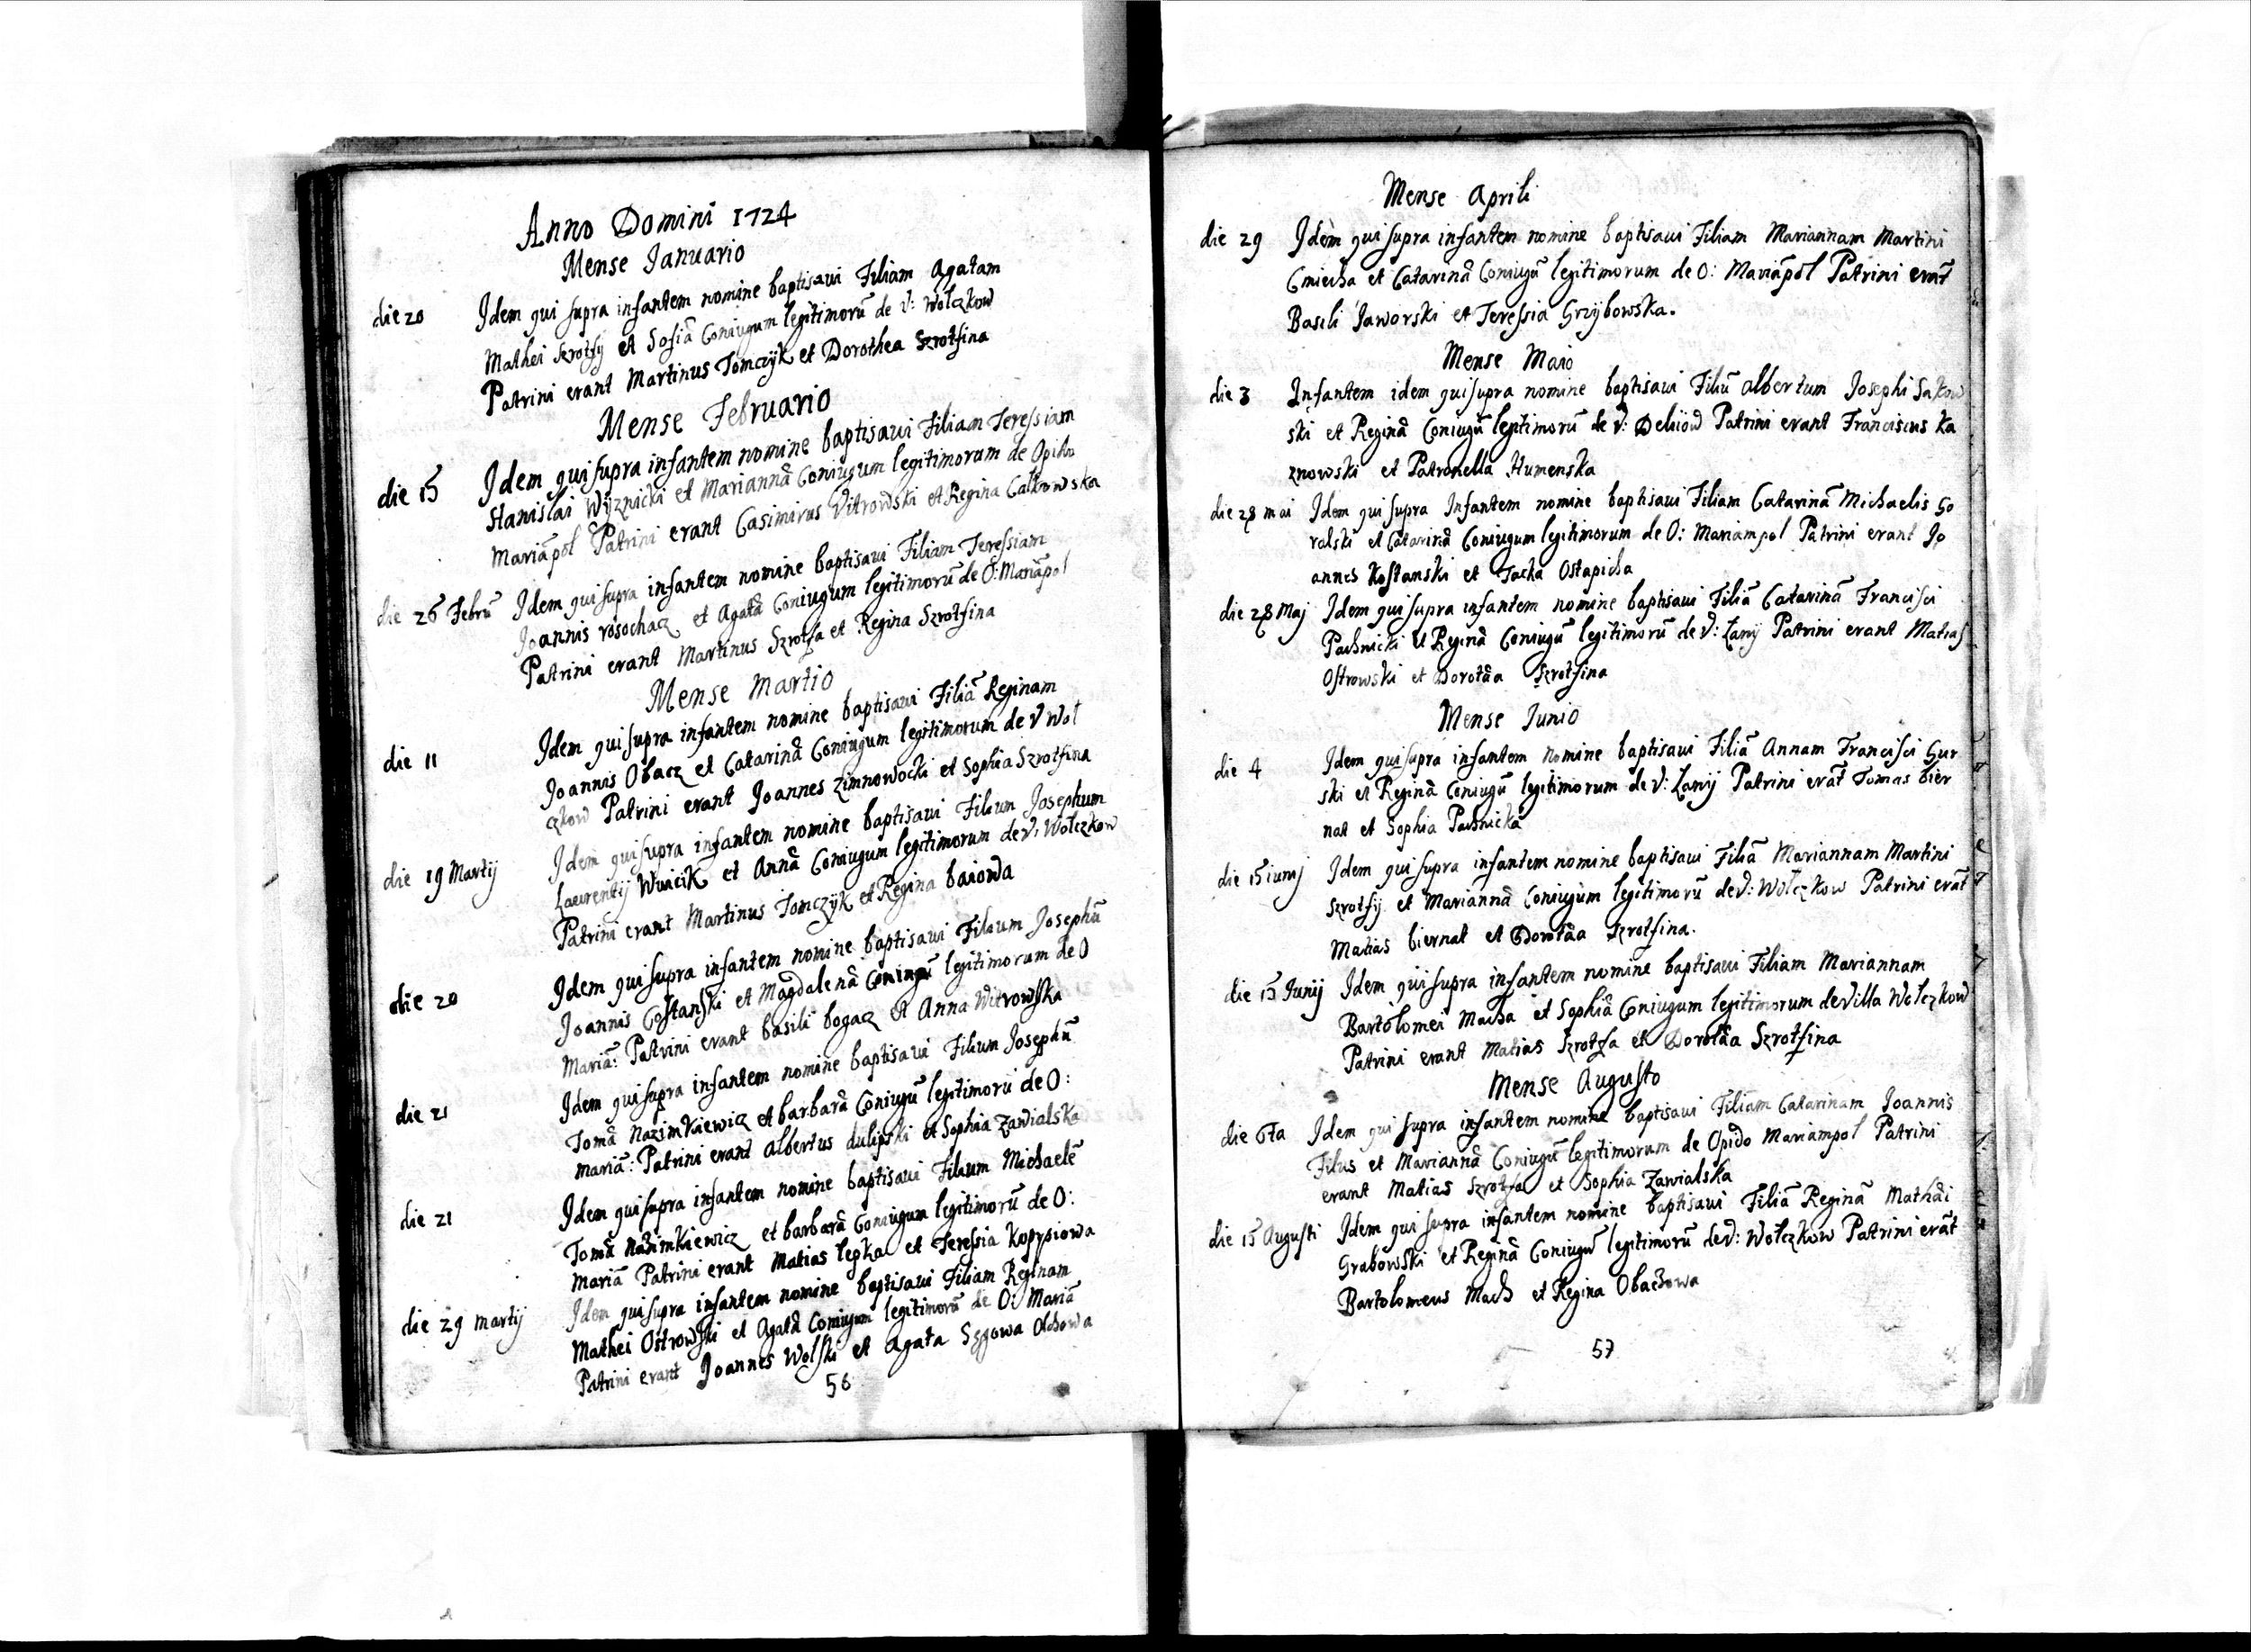 Anno Domini 1724
Mense Ianuario
die 20 Idem qui supra infantem nomine baptisaui Filiam Agatam
Mathei Szrotsy et Sofiã Coniugum legitimorũ de V: Wołczkow
Patrini erant Martinus Tomczyk et Dorothea Szrotsina
Mense Februario
die 15 Idem qui supra infantem nomine baptisaui Filiam Teressiam
Stanislai Wyznicki et Mariannã Coniugum legitimorum de Opido
Mariãpol Patrini erant Casimirus Vitrowski et Regina Całkowska
die 26 Febrũ Idem qui supra infantem nomine baptisaui Filiam Teressiam
Joannis rosochacz et Agatã Coniugum legitimorũ de O: Mariãpol
Patrini erant Martinus Szrotsa et Regina Szrotsina
Mense Martio
die 11 Idem qui supra infantem nomine baptisaui Filiã Reginam
Joannis Obacz et Catarinã Coniugum legitimorum de V Woł
czkow Patrini erant Joannes Zimnowocki et Sophia Szrotsina
die 19 Martij Idem qui supra infantem nomine baptisaui Filium Josephum
Laurentij Wuicik et Annã Coniugum legitimorum de V: Wołczkow
Patrini erant Martinus Tomczyk et Regina baiowa
die 20 Idem qui supra infantem nomine baptisaui Filium Josephũ
Joannis Costanski et Magdalenã Coniugũ legitimorum de O
Mariã: Patrini erant basili bogacz et Anna Witrowska
die 21 Idem qui supra infantem nomine baptisaui Filium Josephũ
Tomã Nazimkiewicz et barbarã Coniugũ legitimorũ de O:
mariã: Patrini erant albertus dulipski et Sophia Zawialska
die 21 Idem qui supra infantem nomine baptisaui Filium Michaelẽ
Tomã Nazimkiewicz et barbarã Coniugum legitimorũ de O:
Mariã Patrini erant Matias lepka et Teressia Kopysiowa
die 29 martij Idem qui supra infantem nomine baptisaui Filiam Reginam
Mathei Ostrowski et Agatã Coniugum legitimorũ de O: Mariã
Patrini erant Joannes Wolski et Agata Olchowa
56
Mense Aprili
die 29 Idem qui supra infantem nomine baptisaui Filiam Mariannam Martini
Cmiecha et Catarinã Coniugũ legitimorum de O: Mariãpol Patrini erãt
Basili Jaworski et Teressia Grzybowska.
Mense Maio
die 3 Infantem idem qui supra nomine baptisaui Filiũ albertum Josephi Sakow
ski et Reginã Coniugũ legitimorũ de V: Deliiow Patrini erant Franciscus Ka
znowski et Patronella Humenska
die 28 mai Idem qui supra Infantem nomine baptisaui Filiam Catarinã Michaelis Go
ralski et Catarinã Coniugum legitimorum de O: Mariampol Patrini erant Jo
annes Kostanski et Jacka Ostapicha
die 28 Maj Idem qui supra infantem nomine baptisaui Filiã Catarinã Francisci
Pachnicki et Reginã Coniugũ legitimorũ de V: Łany Patrini erant Matias
Ostrowski et Dorotãa Szrotsina
Mense Junio
die 4 Idem qui supra infantem nomine baptisaui Filiã Annam Francisci Gur
ski et Reginã Coniugũ legitimorum de V: Łany Patrini erãt Tomas bier
nat et Sophia Pachnicka
die 15 iunij Idem qui supra infantem nomine baptisaui Filiã Mariannam Martini
Szrotsy et Mariannã Coniugum legitimorũ de V: Wołczkow Patrini erãt
Matias biernat et Dorotãa Szrotsina.
die 15 Junij Idem qui supra infantem nomine baptisaui Filiam Mariannam
Bartolomei Macha et Sophiã Coniugum legitimorum de Villa Wołczkow
Patrini erant Matias Szrotsa et Dorotãa Szrotsina
Mense Augusto
die 6ta Idem qui supra infantem nomine baptisaui Filiam Catarinam Joannis
Filus et Mariannã Coniugũ legitimorum de Opido Mariampol Patrini
erant Matias Szrotsa et Sophia Zawialska
die 15 Augusti Idem qui supra infantem nomine baptisaui Filiã Reginã Mathãi
Grabowski et Reginã Coniugũ legitimorũ de V: Wołczkow Patrini erãt
Bartolomeus Mach et Regina Obachowa
57